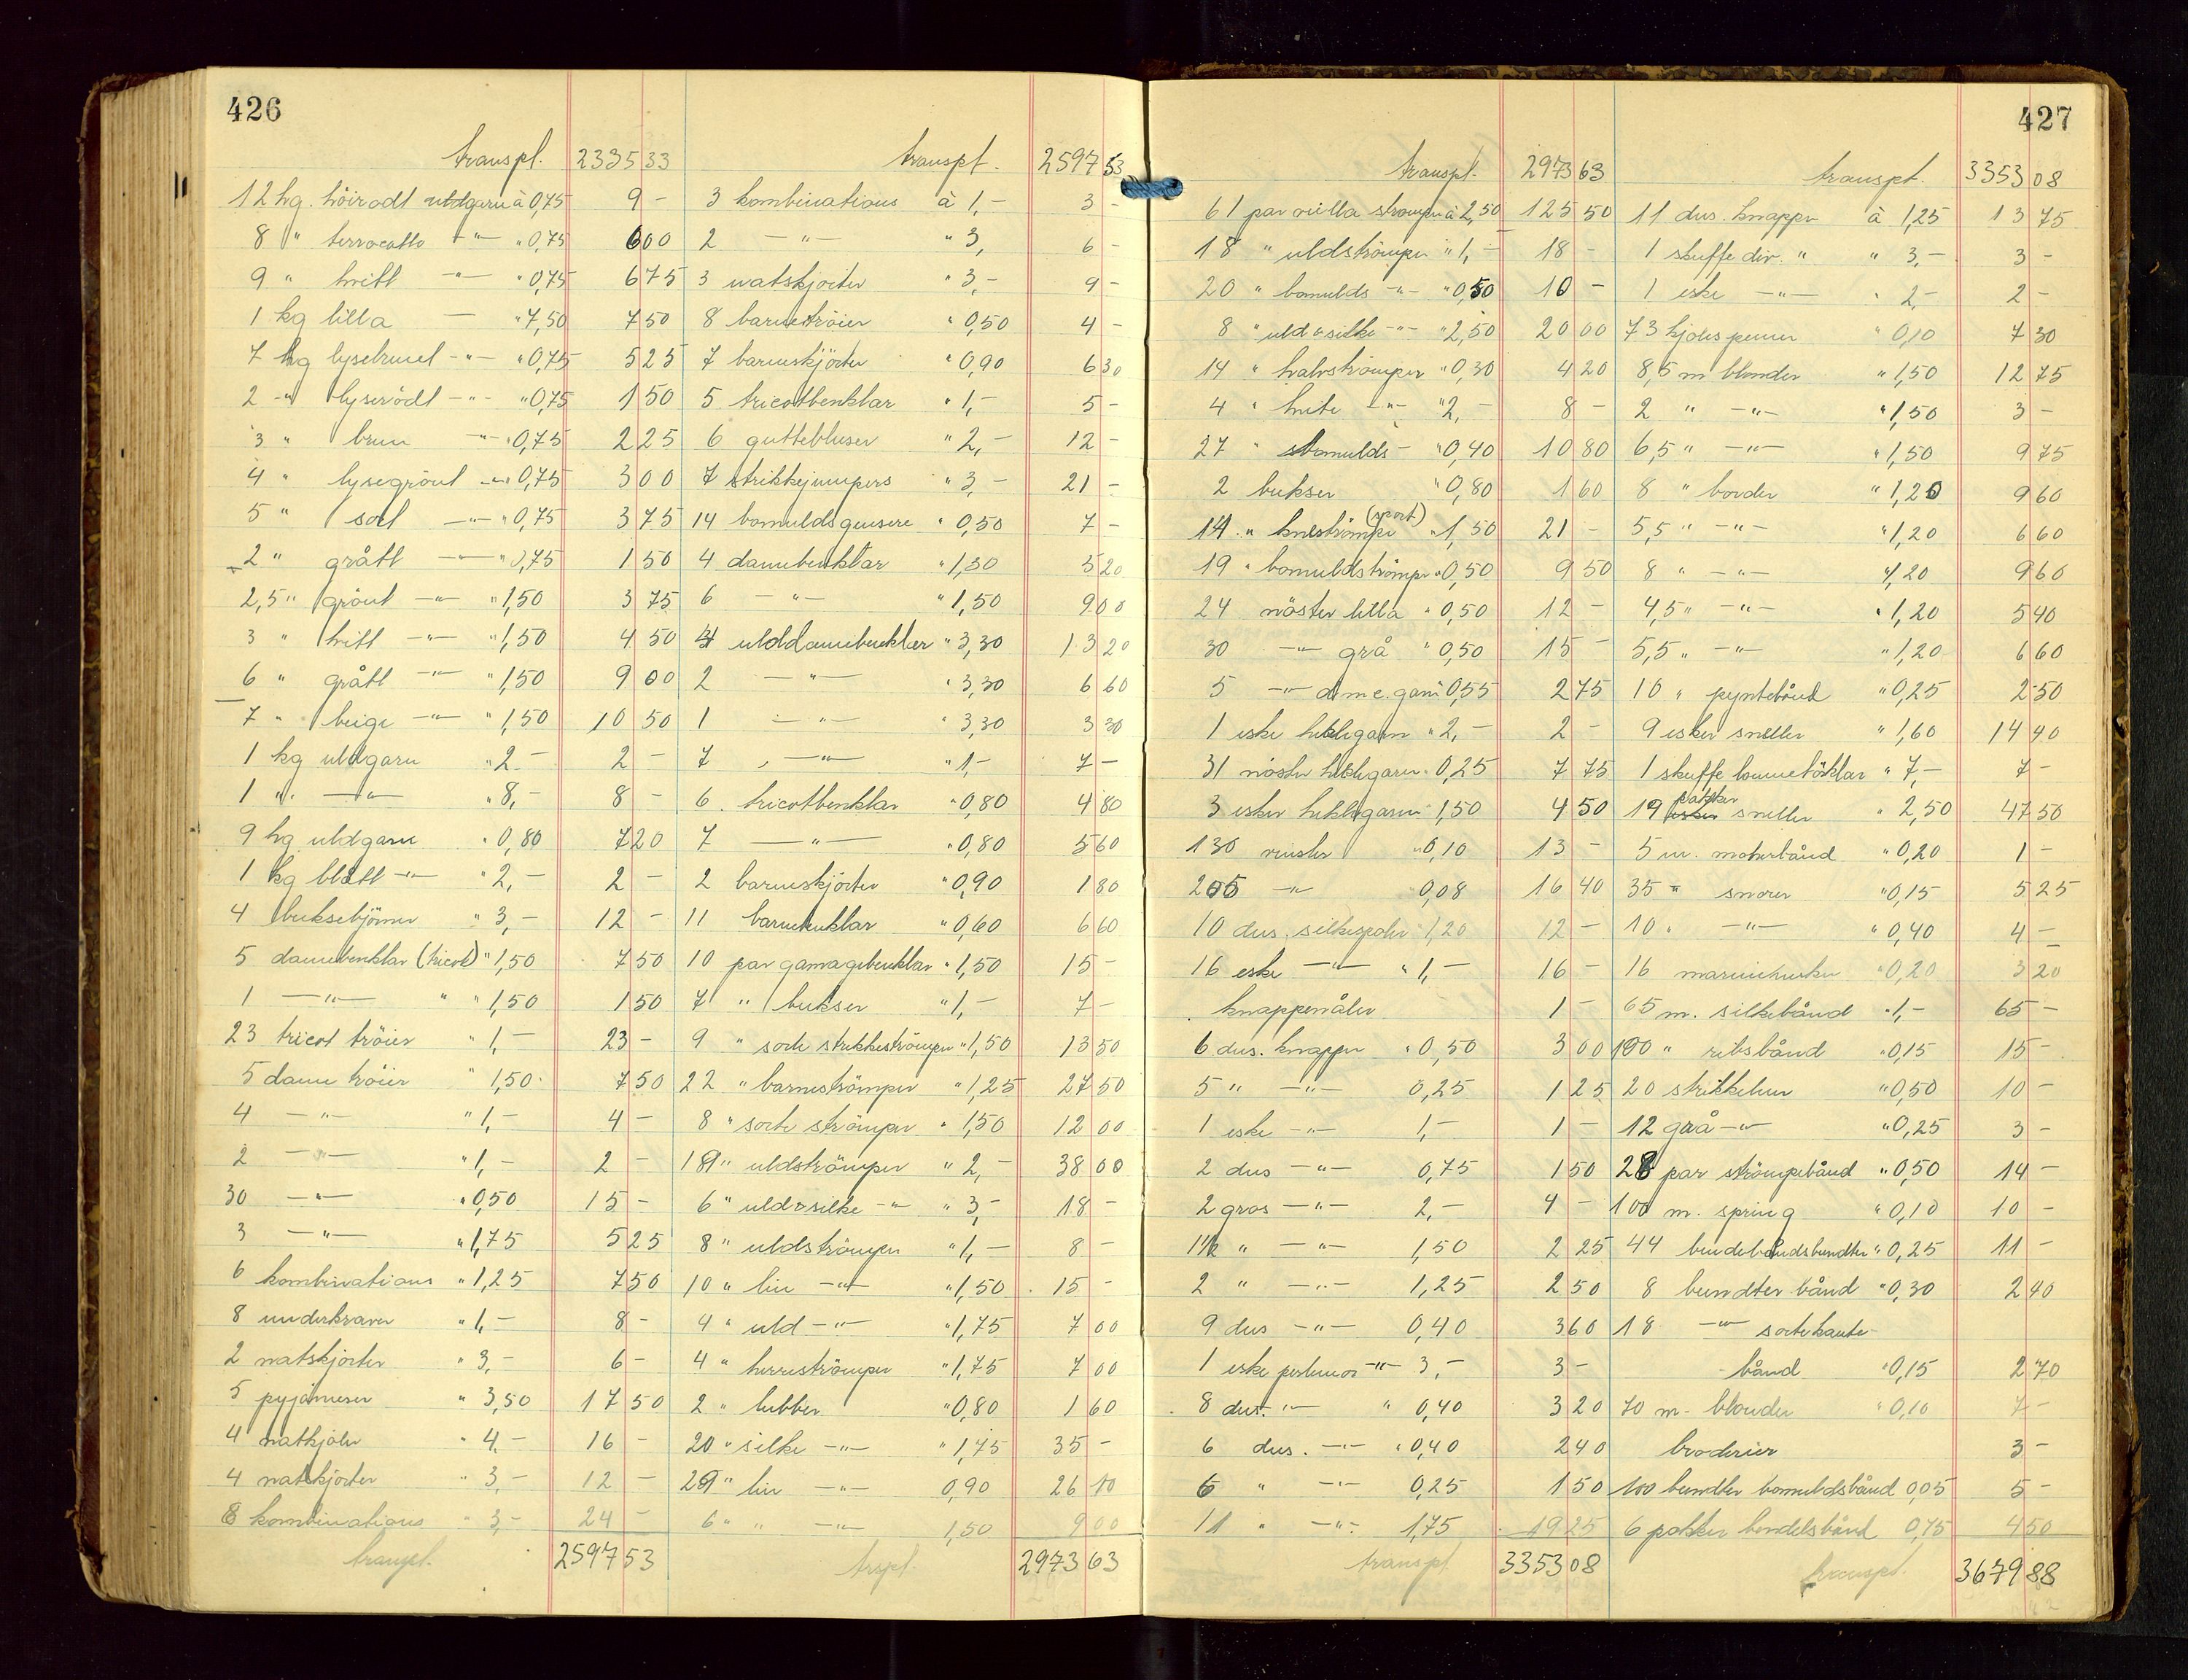 426
transpt. 2335 33
12 hg. höirødt uldgarn à 0,75 9 -
8 " terracotta -"- " 0,75 6 00
9 " hvitt -"- " 0,75 6 75
1 kg lilla — " 7,50 7 50
7 hg lysebrunt -"- " 0,75 5 25
2 -"- lyserödt -"- " 0,75 1 50
3 " brun -"- " 0,75 2 25
4 " lysegrönt -"- " 0,75 3 00
5 " sort -"- " 0,75 3 75
2 " grått -"- " 0,75 1 50
2,5 " grönt -"- " 1,50 3 75
3 " hvitt -"- " 1,50 4 50
6 " grått -"- " 1,50 9 00
7 " beige -"- " 1,50 10 50
1 kg uldgarn " 2,- 2 -
1 " -"- " 8,- 8 -
9 hg uldgarn " 0,80 7 20
1 kg blått -"- " 2,- 2 -
4 buksebjörner " 3,- 12 -
5 damebenklær (tricot) " 1,50 7 50
1 -"- " " 1,50 1 50
23 tricot tröier " 1,- 23 -
5 dame tröier " 1,50 7 50
4 -"- " 1,- 4 -
2 -"- " 1,- 2 -
30 -"- " 0,50 15 -
3 -"- " 1,75 5 25
6 kombinations " 1,25 7 50
8 underkraver " 1,- 8 -
2 natskjorter " 3,- 6 -
5 pyjamaser " 3,50 17 50
4 natkjoler " 4,- 16 -
4 natskjorter " 3,- 12 -
8 kombinations " 3,- 24 -
transpt. 2597 53
transpt. 2597 53
3 kombinations à 1,- 3 -
2 -"- " 3, 6 -
3 natskjorter " 3,- 9 -
8 barnetröier " 0,50 4 -
7 barneskjörter " 0,90 6 30
5 tricotbenklær " 1,- 5 -
6 guttebluser " 2,- 12 -
7 strikkejumpers " 3,- 21 -
14 bomuldsgensere " 0,50 7 -
4 damebenklær " 1,30 5 20
6 -"- " 1,50 9 00
4 ulddamebenklær " 3,30 13 20
2 -"- " 3,30 6 60
1 -"- " 3,30 3 30
7 -"- " 1,- 7 -
6 tricotbenklær " 0,80 4 80
7 -"- " 0,80 5 60
2 barneskjörter " 0,90 1 80
11 barnebenklær " 0,60 6 60
10 par gamagebenklær " 1,50 15 -
7 " bukser " 1,- 7 -
9 " sorte strikkeströmper " 1,50 13 50
22 " barneströmper " 1,25 27 50
8 " sorte strömper " 1,50 12 00
19 " uldströmper " 2,- 38 00
6 " uld & silke -"- " 3,- 18 -
8 " uldströmper " 1,- 8 -
10 " lin -"- " 1,50 15 -
4 " uld -"- " 1,75 7 00
4 " herreströmper " 1,75 7 00
2 " lubber " 0,80 1 60
20 " silke -"- " 1,75 35 -
29 " lin -"- 0,90 26 10
6 " " -"- 1,50 9 00
trspt. 2973 63
427
transpt. 2973 63
61 par strömper à 2,50 125 50
18 " uldströmper " 1,- 18 -
20 " bomulds -"- " 0,50 10 -
8 " uld & silke -"- " 2,50 20 00
14 " halvströmper " 0,30 4 20
4 " hvite -"- " 2,- 8 -
27 " bomulds - " 0,40 10 80
2 bukser " 0,80 1 60
14 " kneströmper (sport) " 1,50 21 -
19 " bomuldströmper " 0,50 9 50
24 nöster lilla " 0,50 12 -
30 -"- grå " 0,50 15 -
5 -"- d.m.c. garn 0,55 2 75
1 eske heklegarn " 2,- 2 -
31 nöster heklegarn " 0,25 7 75
3 esker heklegarn " 1,50 4 50
130 " 0,10 13 -
205 -"- 0,08 16 40
10 dus. silkespoler 1,20 12 -
16 eske -"- " 1,- 16 -
knappenåler 1 -
6 dus. knapper " 0,50 3 00
5 " -"- 0,25 1 25
1 eske -"- 1,- 1 -
2 dus -"- 0,75 1 50
2 gros -"- 2,- 4 -
1½ " -"- 1,50 2 25
2 " -"- 1,25 2 50
9 dus -"- 0,40 3 60
1 eske perlemor -"- 3,- 3 -
8 dus. -"- " 0,40 3 20
6 dus. -"- " 0,40 2 40
6 " -"- 0,25 1 50
11 " -"- 1,75 19 25
transpt 3353 08
transpt. 3353 08
11 dus. knapper à 1,25 13 75
1 skuffe div. " " 3,- 3 -
1 eske -"- " 2,- 2 -
73 kjolespenner " 0,10 7 30
8,5 m blonder " 1,50 12 75
2 " -"- " 1,50 3 -
6,5 " -"- " 1,50 9 75
8 " border " 1,20 9 60
5,5 " -"- " 1,20 6 60
8 " -"- " 1,20 9 60
4,5 " -"- " 1,20 5 40
5,5 " -"- " 1,20 6 60
10 " pyntebånd " 0,25 2 50
9 esker sneller " 1,60 14 40
1 skuffe lommetörklær " 7,- 7 -
19 pakker sneller " 2,50 47 50
5 m. bånd " 0,20 1 -
35 " snorer " 0,15 5 25
10 " -"- " 0,40 4 -
16 " 0,20 3 20
65 m. silkebånd " 1,- 65 -
100 " ribsbånd " 0,15 15 -
20 " 0,50 10 -
12 grå -"- " 0,25 3 -
28 par strömpebånd " 0,50 14 -
100 m. spring " 0,10 10 -
44 bendebåndsbundter " 0,25 11 -
8 bundter bånd " 0,30 2 40
18 -"- sorte kante-
bånd " 0,15 2 70
70 m. blonder " 0,10 7 -
broderier 3 -
100 bundter bomuldsbånd 0,05 5 -
6 pakker bendelsbånd 0,75 4 50
transpt. 3679 88